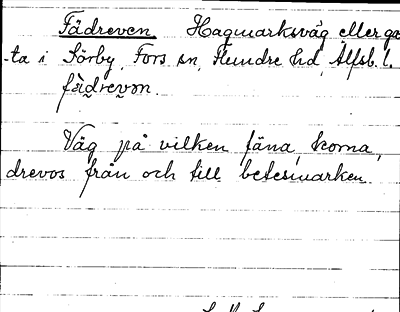 Fädreven. Hagmarksväg eller ga
-ta i Sörby, Fors sn, Flundre hd, Älfsb. l.
fädrevon.
Väg på vilken fäna, korna,
drevos från och till betesmarken.